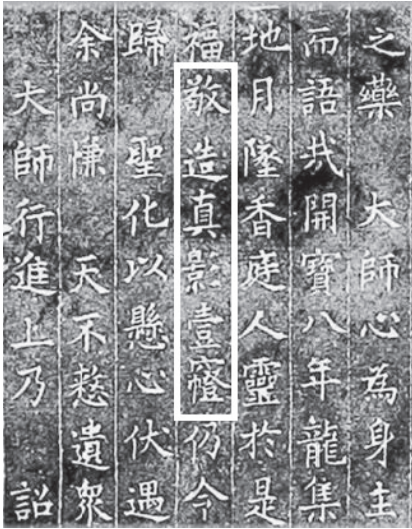 之藥 大師心為身主
而語哉開寶八年龍集
地月墜香庭人靈於是
福敬造真影壹仍今
歸 聖化以懸心伏遇
余尚慊 天不憖遺衆
大師行進上乃 詔